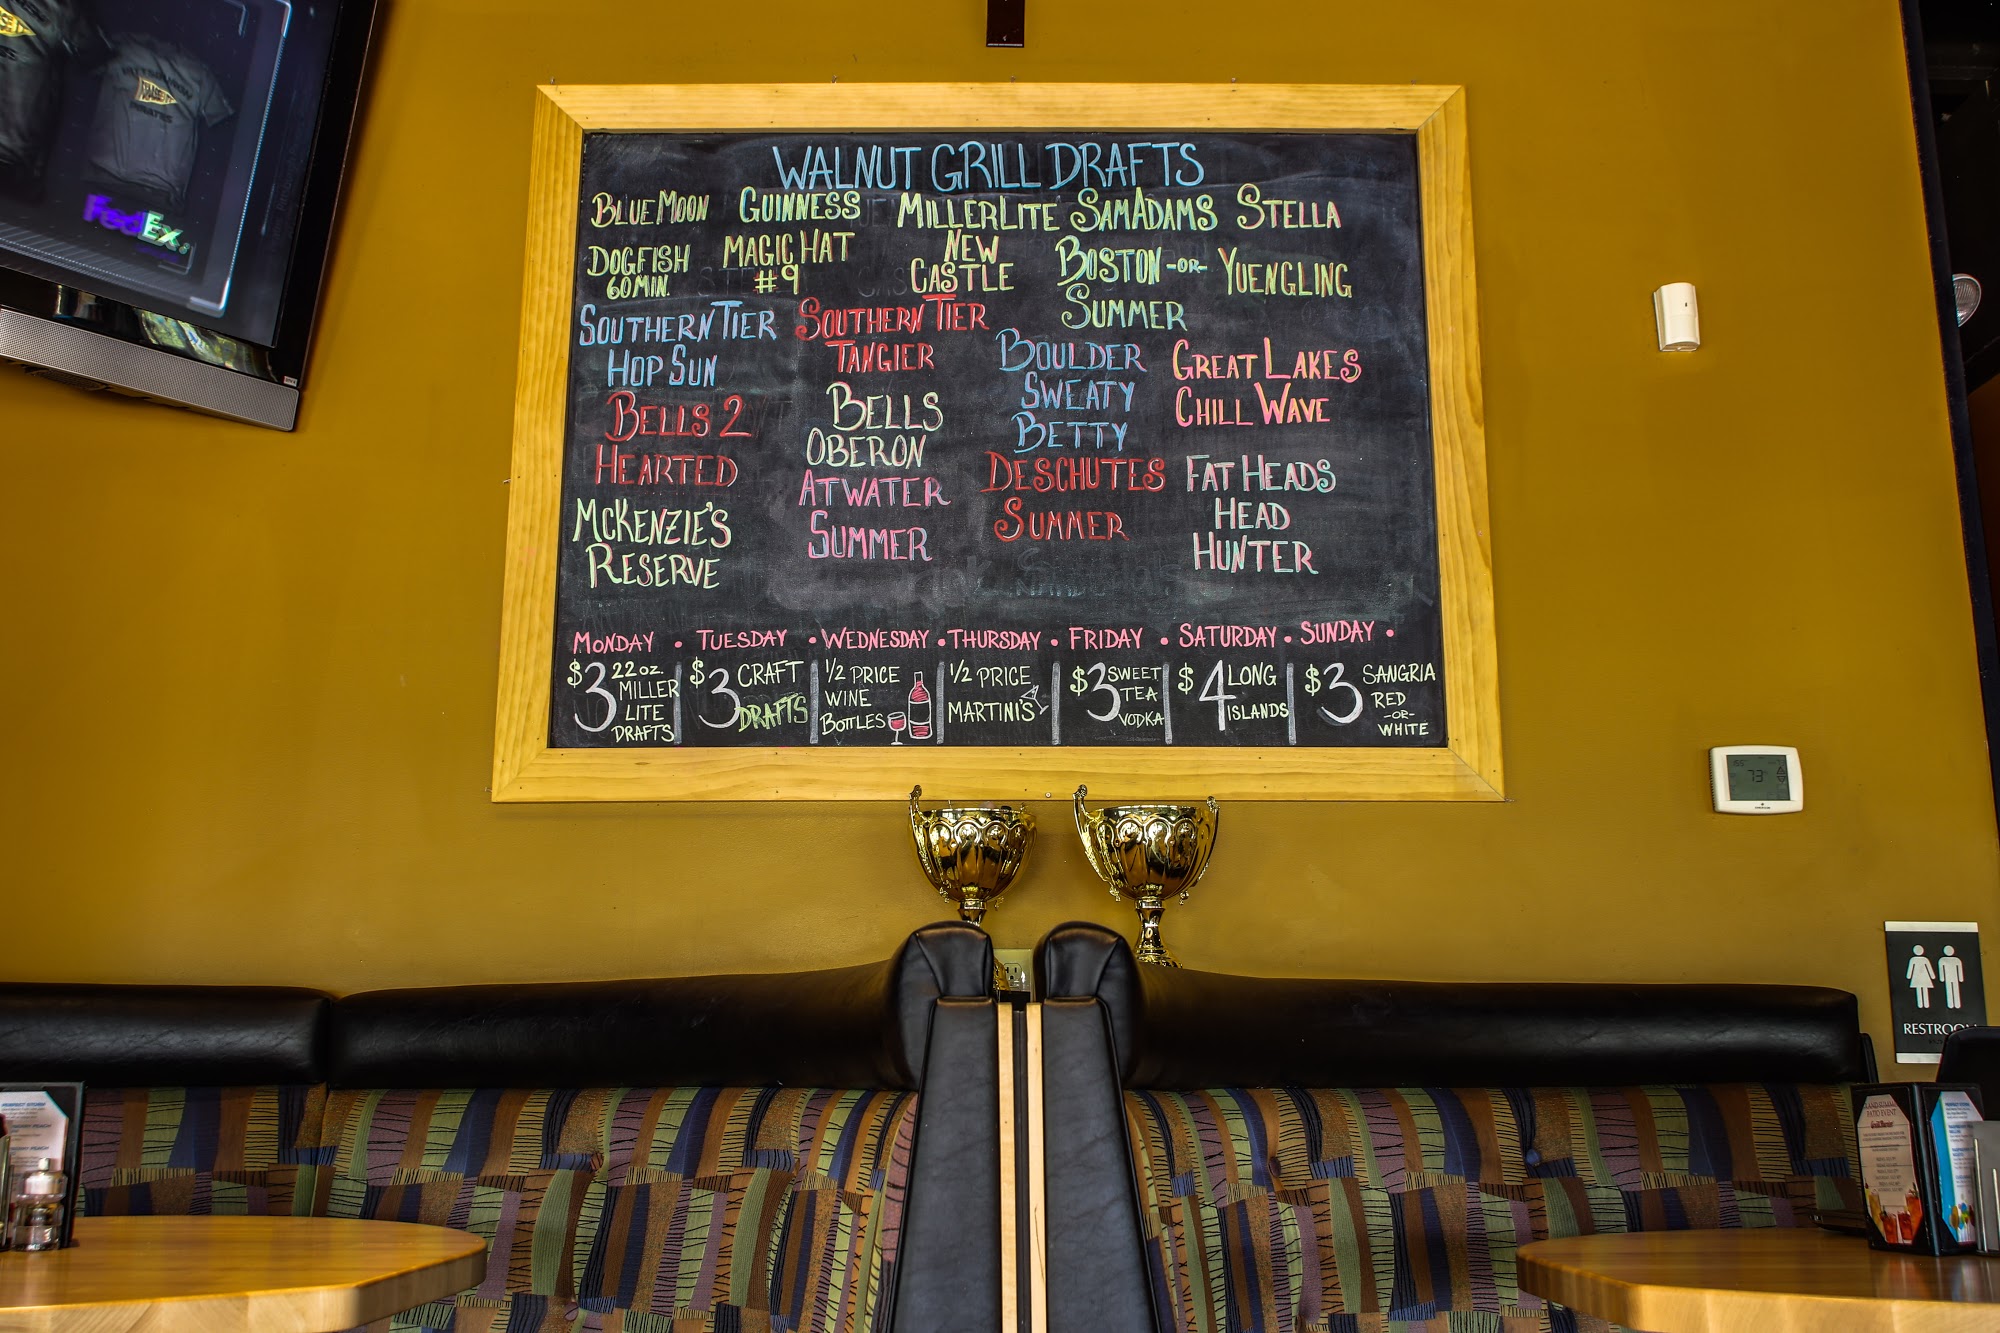 WALNUT GRILL DRAFTS
BLUE MOON GUINNESS MILLER LITE SAM ADAMS STELLA
DOGFISH
60 MIN.
MAGIC HAT
#9
NEW
CASTLE
BOSTON -OR- YUENGLING
SUMMER
SOUTHERN TIER
HOP SUN
SOUTHERN TIER
TANGIER
BOULDER
SWEATY
BETTY
GREAT LAKES
CHILL WAVE
BELLS 2
HEARTED
BELLS
OBERON
DESCHUTES
SUMMER
FAT HEADS
HEAD
HUNTER
MCKENZIE'S
RESERVE
ATWATER
SUMMER
MONDAY • TUESDAY • WEDNESDAY • THURSDAY • FRIDAY • SATURDAY • SUNDAY •
$3 22 oz.
MILLER
LITE
DRAFTS
$3 CRAFT
DRAFTS
1/2 PRICE
WINE
BOTTLES
1/2 PRICE
MARTINI'S
$3 SWEET
TEA
VODKA
$4 LONG
ISLANDS
$3 SANGRIA
RED
-OR-
WHITE
FedEx
73
RESTROO
PATIO EVENT